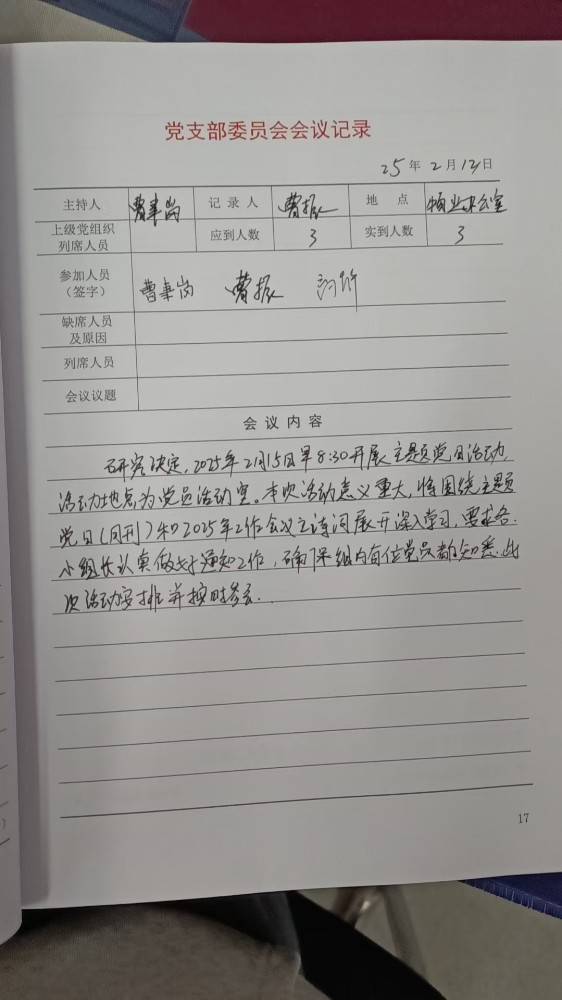 党支部委员会会议记录
25 年 2 月 12 日
主持人 曹事岗 记录人 曹振 地点 物业办公室
上级党组织
列席人员 应到人数 3 实到人数 3
参加人员
（签字） 曹事岗 曹振
缺席人员
及原因
列席人员
会议议题
会议内容
研究决定，2025年2月15日早8:30开展主题党日活动，
活动地点为党员活动室。本次活动意义重大，将围绕主题
党日（月刊）和2025年工作会议主诗词展开深入学习，要求各
小组长认真做好通知工作，确保组内每位党员都知悉此
次活动安排并按时参会.
17